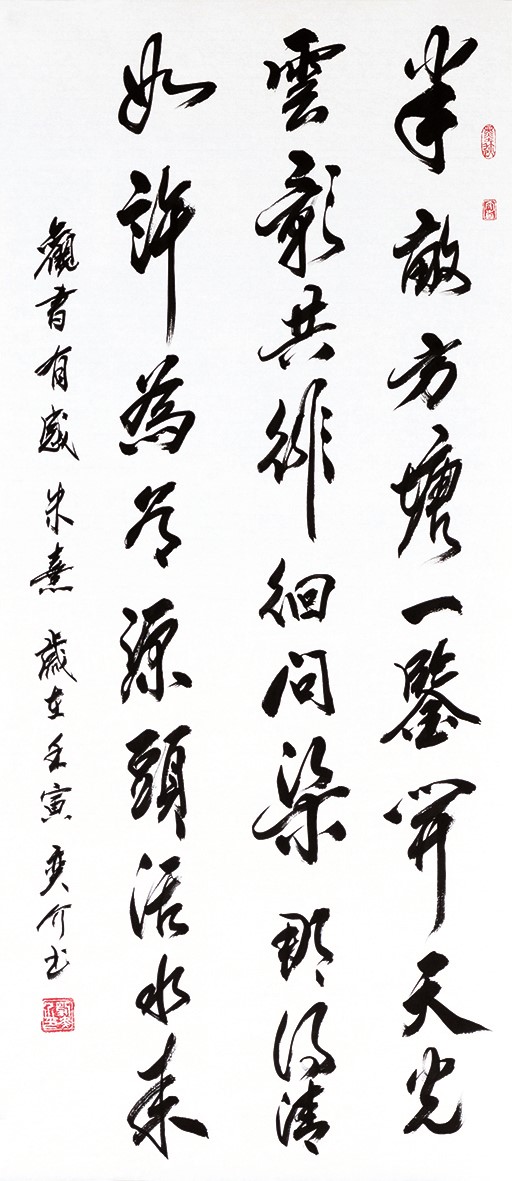 半畝方塘一鑒開天光
雲影共徘徊問渠那得清
如許為有源頭活水來
觀書有感 朱熹 歲在壬寅 奕介书